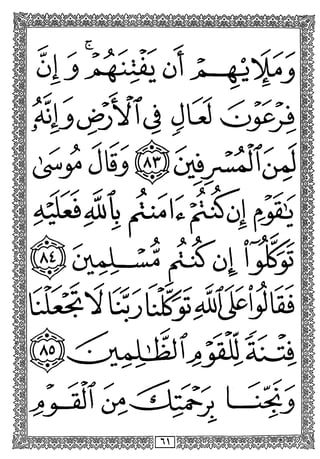 وَمَلَإِيْهِمْ أَن يَفْتِنَهُمْ ۚ وَإِنَّ
فِرْعَوْنَ لَعَالٍ فِي الْأَرْضِ وَإِنَّهُ
لَمِنَ الْمُسْرِفِينَ ٨٣ وَقَالَ مُوسَىٰ
يَٰقَوْمِ إِن كُنتُمْ ءَامَنتُم بِاللَّهِ فَعَلَيْهِ
تَوَكَّلُوٓا۟ إِن كُنتُم مُّسْلِمِينَ ٨٤
فَقَالُوا۟ عَلَى اللَّهِ تَوَكَّلْنَا رَبَّنَا لَا تَجْعَلْنَا
فِتْنَةً لِّلْقَوْمِ الظَّٰلِمِينَ ٨٥
وَنَجِّنَا بِرَحْمَتِكَ مِنَ الْقَوْمِ
٦١